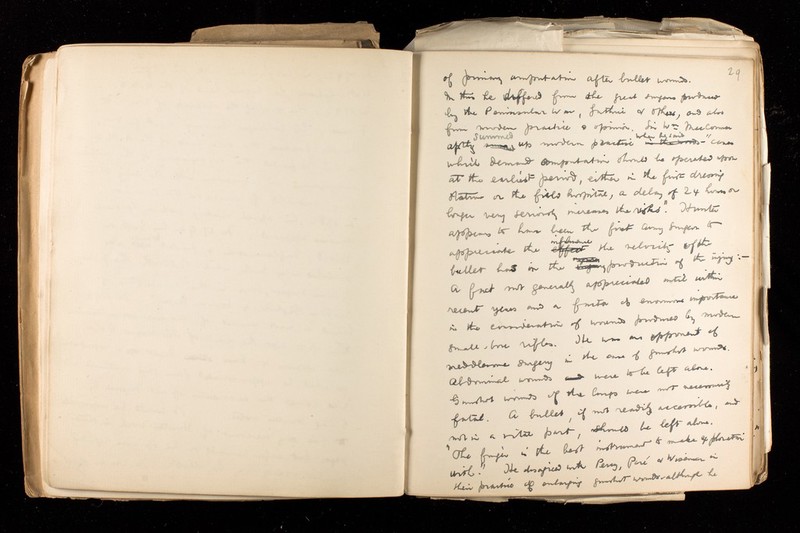 29
of primary amputation after bullet wounds.
In this he differed from the great surgeons produced
by the Peninsular War, Guthrie & others, and also
from modern practice & opinion. Sir Wm MacCormac
aptly summed up modern practice when he said "cases
which demand amputation should be operated upon
at the earliest period, either in the first dressing
station or the field hospital, a delay of 24 hours or
longer very seriously increases the risks". Hunter
appears to have been the first Army Surgeon to
appreciate the influence the velocity of the
bullet has in the production of the injury:—
a fact not generally appreciated until within
recent years and a factor of enormous importance
in the consideration of wounds produced by modern
small-bore rifles. He was an opponent of
meddlesome surgery in the case of gunshot wounds.
Abdominal wounds were to be left alone.
Gunshot wounds of the lungs were not necessarily
fatal. A bullet, if not readily accessible, and
not in a vital part, should be left alone.
"The finger is the best instrument to make exploration
with." He disagreed with Percy, Paré & Wiseman in
their practice of enlarging gunshot wounds although he